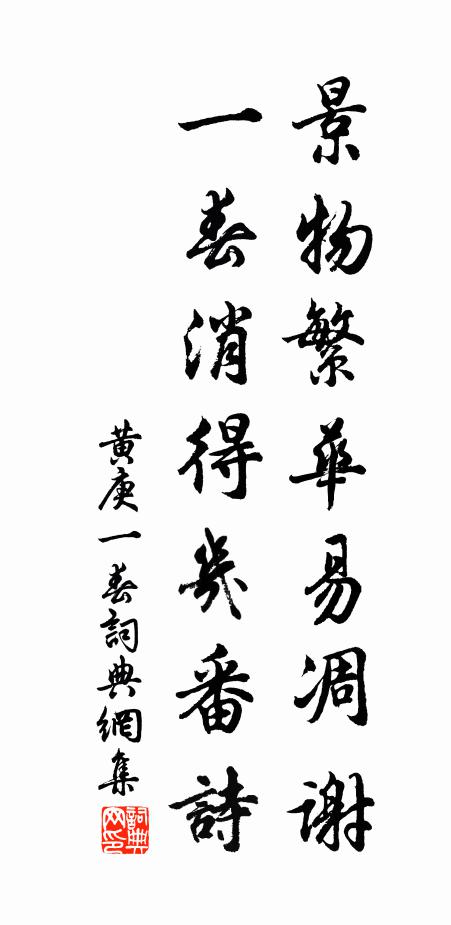 景物繁華易凋謝
一春消得幾番詩
黃庚一春詞典網集
詞典網印